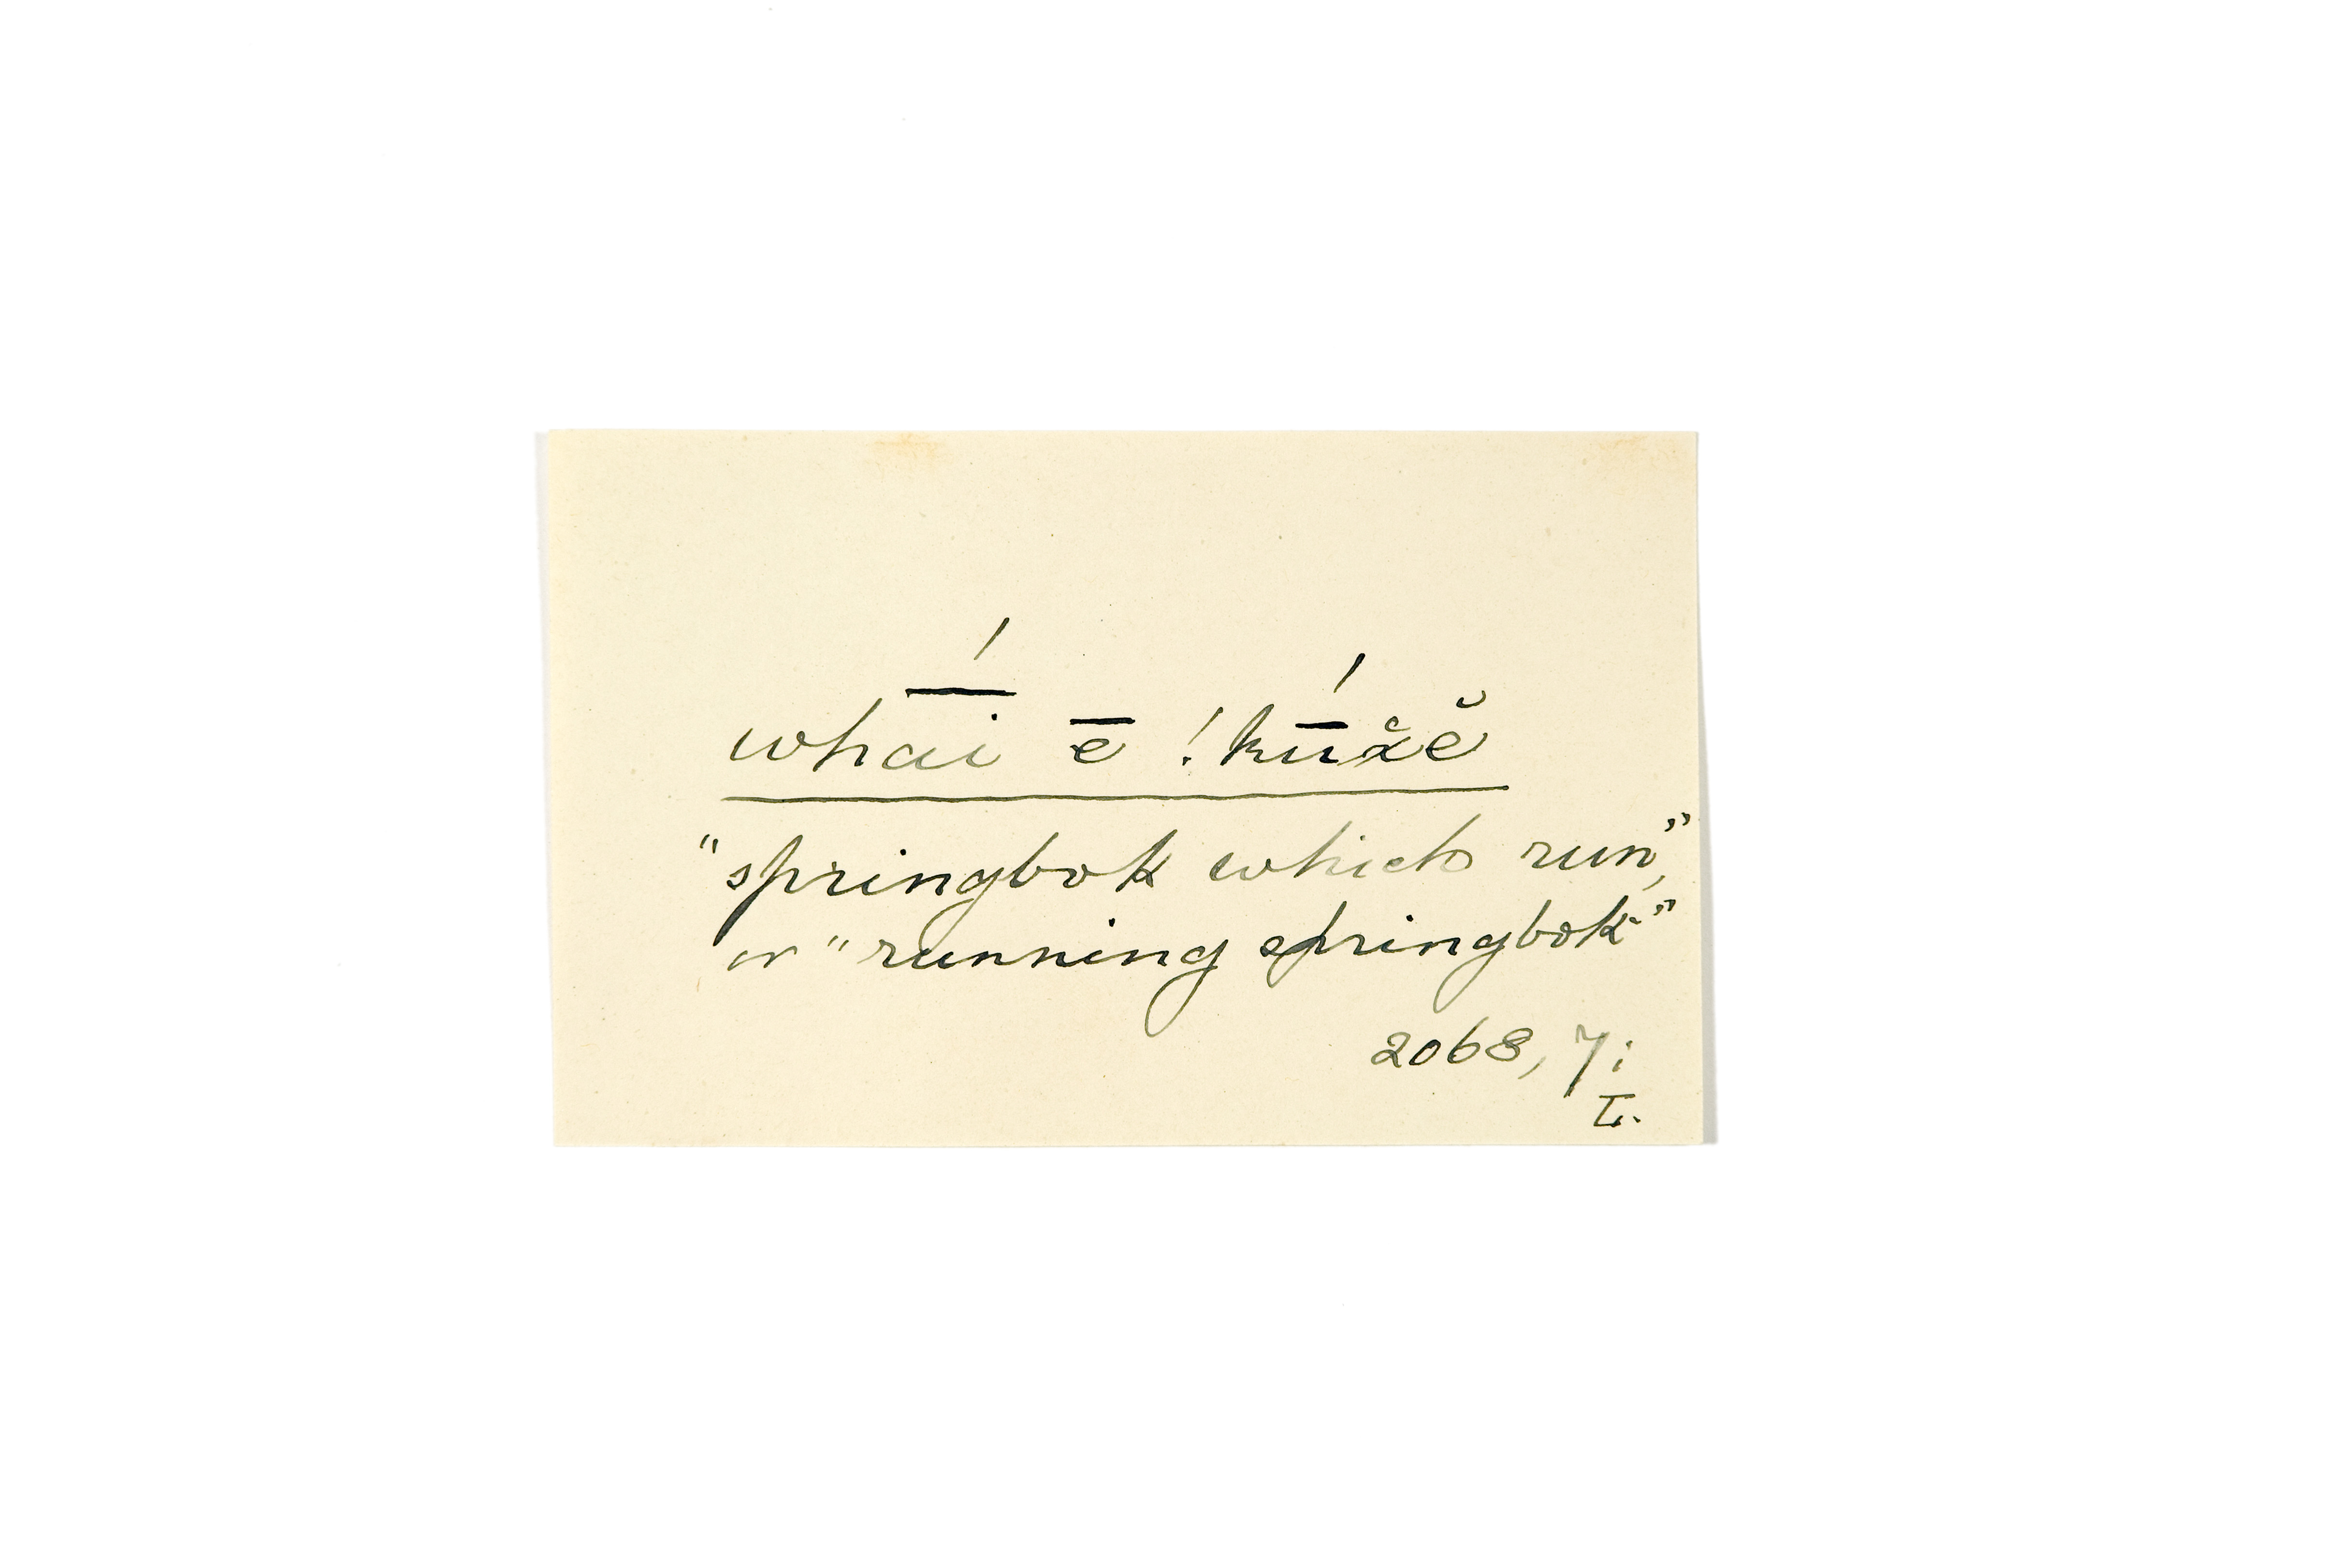 wha͞í ē !kū́χ̆ĕ
"springbok which run,"
or "running springbok"
2068, 7;
L.